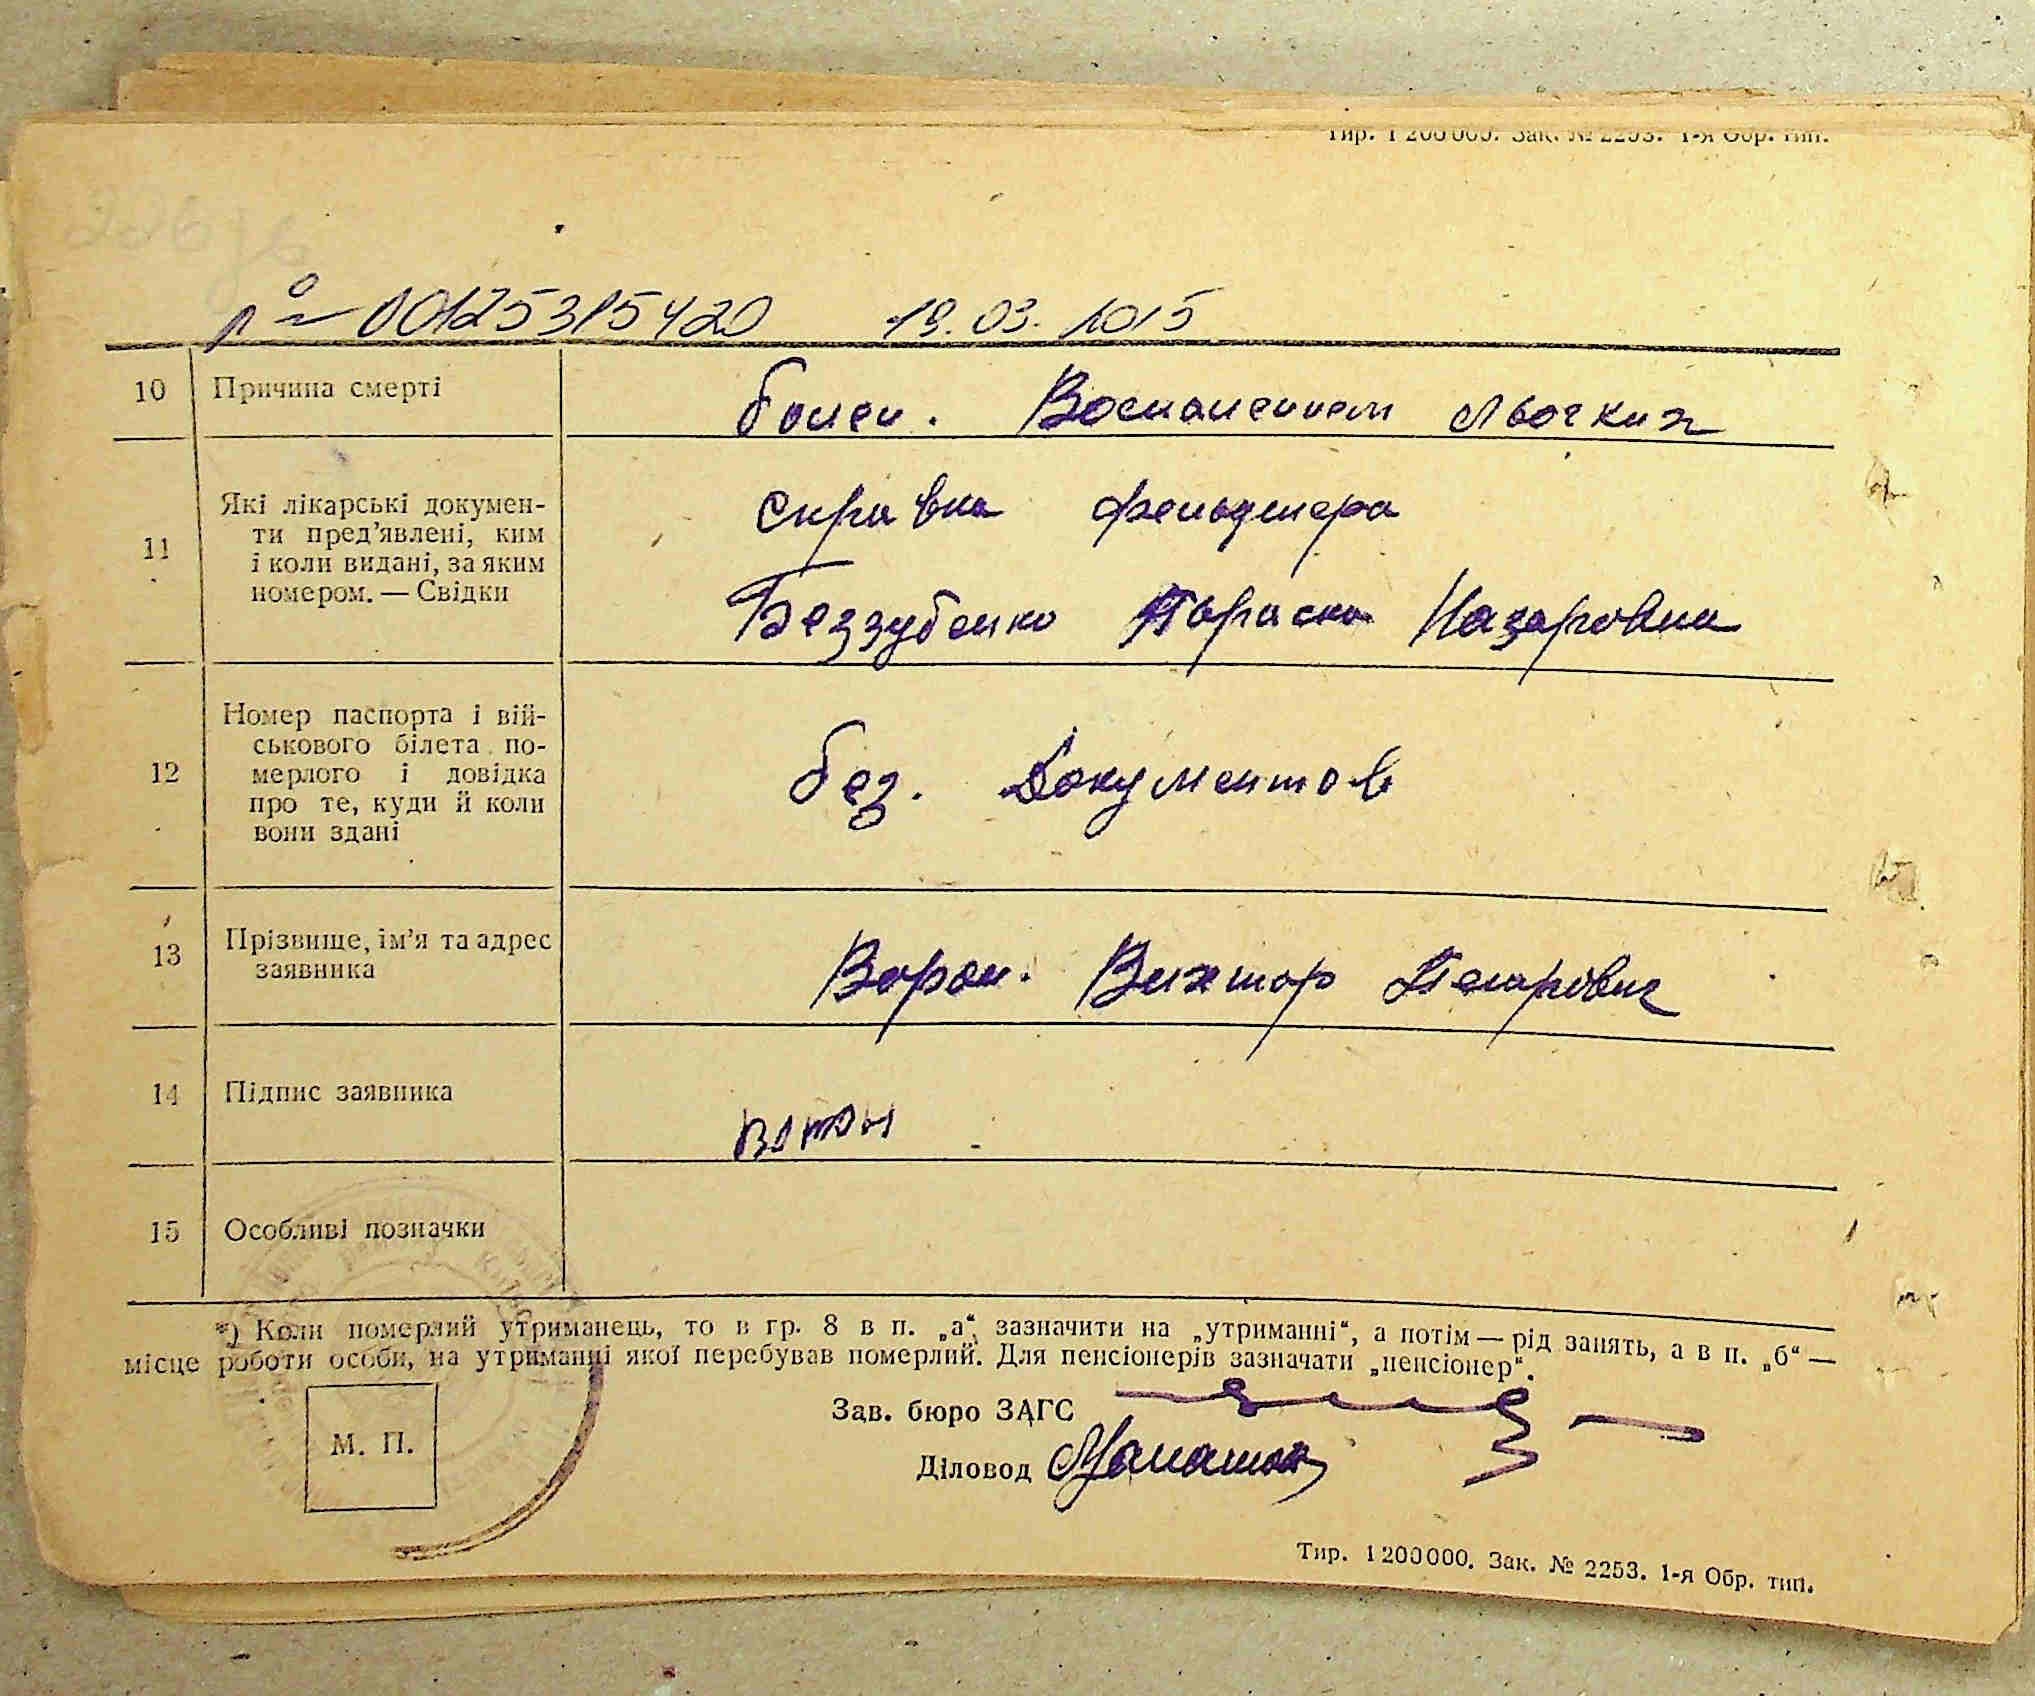 Тир. 1 200 000. Зак. № 2253. 1-я Обр. тип.
№ 00125315420 19.03.2015
10 Причина смерті болен. Воспаением Льогких
11 Які лікарські докумен-
ти пред’явлені, ким
і коли видані, за яким
номером. — Свідки
справка фельдшера
Беззубенко Параска Назаровна
12 Номер паспорта і вій-
ськового білета по-
мерлого і довідка
про те, куди й коли
вони здані
без. Документов
13 Прізвище, ім’я та адрес
заявника
Ворон. Виктор Петрович
14 Підпис заявника
15 Особливі позначки
*) Коли померлий утриманець, то в гр. 8 в п. „а“ зазначити на „утриманні“, а потім — рід занять, а в п. „б“ —
місце роботи особи, на утриманні якої перебував померлий. Для пенсіонерів зазначати „пенсіонер“.
Зав. бюро ЗАГС
М. П.
Діловод
Тир. 1 200 000. Зак. № 2253. 1-я Обр. тип.